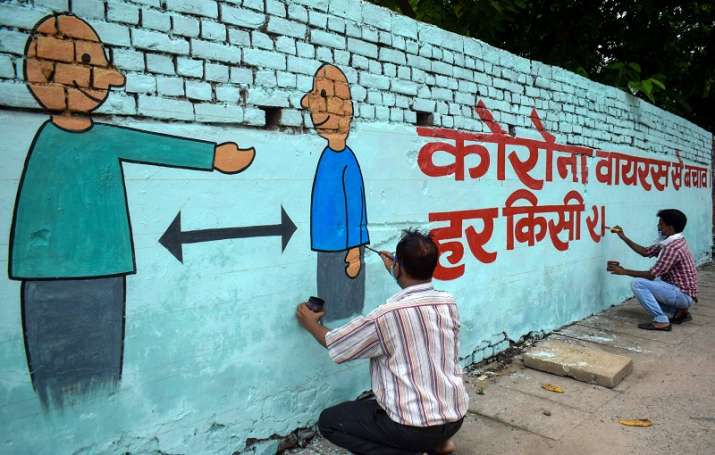 कोरोना वायरस से बचाव
हर किसी